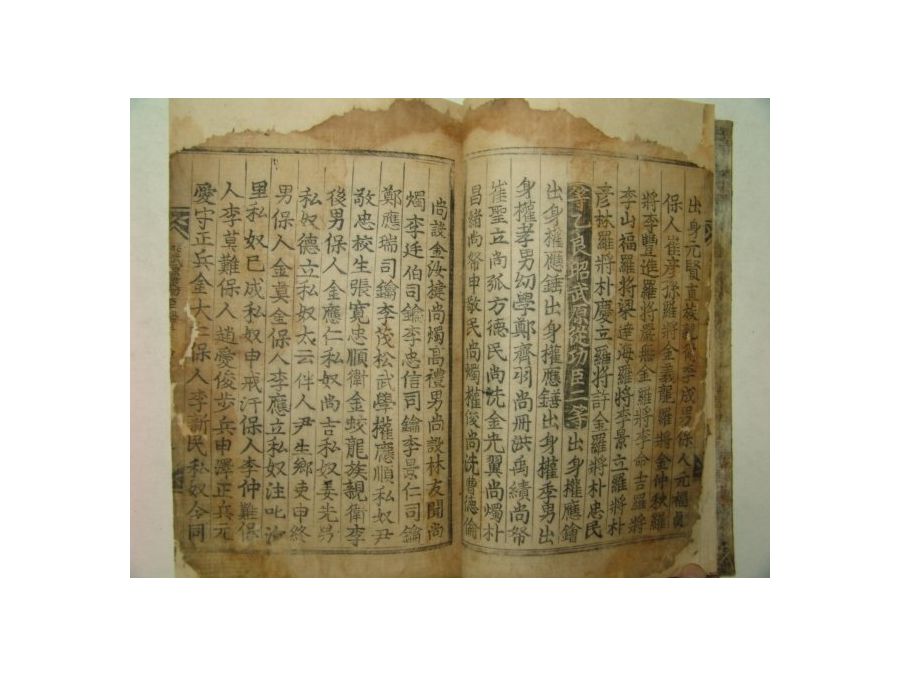 出身元賢直族親衛李成男保人元福眞
保人崔彦 保羅將金義龍羅將金仲秋羅
將李豊進羅將嚴 金羅將李命吉羅將
李山福羅將梁達海羅將李景立羅將朴
彦林羅將朴慶立羅將許金羅將朴忠民
等乙良昭武原從功臣二等出身權應鑰
出身權應錘出身權應鐥出身權季男出
身權孝男幼學鄭齊羽尚冊洪禹績尚帑
崔聖立尚弧方德民尚洗金光翼尚燭朴
昌緖尚帑申敬民尚燭權俊尚洗曹德倫
尚設金汝揵尚燭高禮男尚設林友聞尚
燭李廷伯司鑰李忠信司鑰李景仁司鑰
鄭應瑞司鑰李茂松武學權應順私奴尹
敬忠校生張寬忠順衛金蛟龍族親衛李
後男保人金應仁私奴尚吉私奴姜光
私奴德立私奴太云伴人尹生鄕吏申終
男保人金莫金保人李應立私奴注叱
里私奴已成私奴申戒汗保人李仲難保
人李莫難保人趙愛俊步兵申澤正兵元
愛守正兵金大仁保人李新民私奴今同